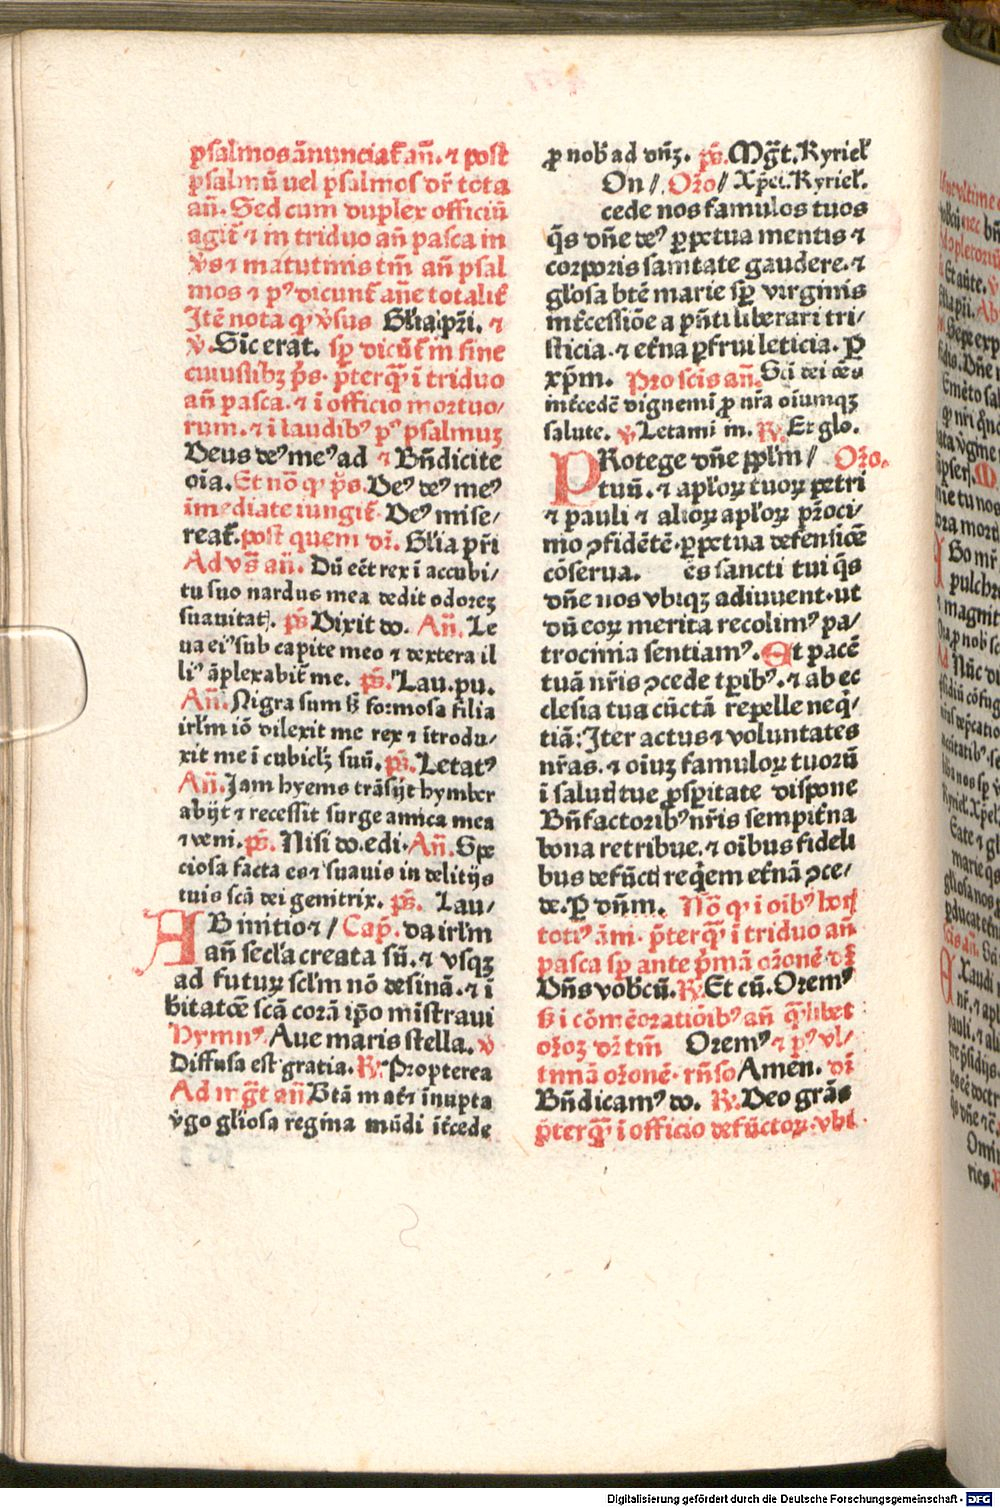 psalmos ãnunciat᷑ añ. ⁊ post
psalmũ uel psalmos dr̃ tota
añ. Sed cum duplex officiũ
agit᷑ ⁊ in triduo añ pasca in
v̾s ⁊ matutinis tm̃ añ psal
mos ⁊ pꝰ dicunt᷑ añe totalit᷑
Itẽ nota ꝙ v̾sus Gl̃ia pr̃i. ⁊
v̾. Sic erat. sp̱ dicũt᷑ in fine
cuiuslibꝫ p̃s. p̃terqᷓ ĩ triduo
añ pasca. ⁊ ĩ officio mortuo/
rum. ⁊ ĩ laudibꝰ pꝰ psalmuꝫ
Deus deꝰ meꝰ ad ⁊ Bñdicite
oĩa. Et nõ ꝙ p̃s. Deꝰ deꝰ meꝰ
ĩmediate iungit᷑ Deꝰ mise/
reat᷑. post quem dr̃. Gl̃ia pr̃i
Ad vs̃ añ. Dũ eẽt rex ĩ accubi/
tu suo nardus mea dedit odoreꝫ
suauitat᷑. ps̃. Dixit do. Añ. Le
ua eiꝰ sub capite meo ⁊ dextera il
liꝰ ãplexabit᷑ me. ps̃. Lau. pu.
Añ. Nigra sum sꝫ formosa filia
irl̃m iõ dilexit me rex ⁊ ĩtrodu/
xit me ĩ cubicl̃ꝫ suũ. ps̃. Letatꝰ
Añ. Jam hyems trãsijt hymber
abijt ⁊ recessit surge amica mea
⁊ veni. ps̃. Nisi do. edi. Añ. Spe
ciosa facta es ⁊ suauis in delitijs
tuis scã dei genitrix. ps̃. Lau/
AB initio ⁊ / Cap̃. da irl̃m
añ secl̃a creata sũ. ⁊ vsqꝫ
ad futuꝝ scl̃m nõ desinã. ⁊ ĩ
hitatõe scã corã ip̃o mistraui
Hymnꝰ Aue maris stella. v̾
Diffusa est gratia. ꝶ. Propterea
Ad mg̃t añ Btã mat᷑ ĩnupta
v̾go gl̃iosa regina mũdi ĩt᷑cede
ꝓ nob̃ ad dñꝫ. ps̃. Mg̃t. Kyriel᷑
On /. Oro̾ / Xp̃el. Kyriel᷑.
cede nos famulos tuos
q̃s dñe deꝰ ꝑpetua mentis ⁊
corporis sanitate gaudere. ⁊
gl̃osa btẽ marie sp̱ virginis
ĩnt᷑cessiõe a p̃nti liberari tri/
sticia. ⁊ et᷑na ꝑfrui leticia. Ꝑ
xp̃m. Pro scis añ. Scĩ dei oẽs
ĩnt᷑cedẽ dignemĩ ꝓ nr̃a oĩumqꝫ
salute. v̾ Letami in. ꝶ. Et glo.
PRotege dñe ppl̃m / Oro̾.
tuũ. ⁊ apl̃oꝝ tuoꝝ petri
⁊ pauli ⁊ alioꝝ apl̃oꝝ pr̃oci/
nio ꝯfidẽtẽ ꝑpetua defensiõe
cõserua. es sancti tui q̃s
dñe nos vbiqꝫ adiuuent. ut
dũ eoꝝ merita recolimꝰ pa/
trocinia sentiamꝰ. Et pacẽ
tuã nr̃is ꝯcede tꝑibꝰ. ⁊ ab ec
clesia tua cũctã repelle neq̃/
tiã: Iter actus ⁊ voluntates
nr̃as. ⁊ oĩuꝫ famuloꝝ tuorũ
ĩ salut᷑ tue ꝓsperitate dispone
Bñfactoribꝰ nr̃is sempit᷑na
bona retribue. ⁊ oĩbus fideli
bus defũct᷑ req̃em et᷑nã ꝯce/
de. Ꝑ dñm. Nõ ꝙ ĩ oĩbꝰ hor᷑
totiꝰ ãni. p̃terqᷓ ĩ triduo añ
pasca sp̱ ante p̃mã oro̾nẽ dr̃
Dñs vobcũ. ꝶ. Et cũ. Oremꝰ
sꝫ ĩ cõmẽoratiõibꝰ añ qᷓlibet
oro̾ꝫ dr̃ tm̃ Oremꝰ ⁊ pꝰ vl/
timã oro̾nẽ. rñso Amen. dr̃
Bñdicamꝰ do. ꝶ. Deo grãs
p̃terqᷓ ĩ officio defũctoꝝ. vbi
Digitalisierung gefördert durch die Deutsche Forschungsgemeinschaft - DFG